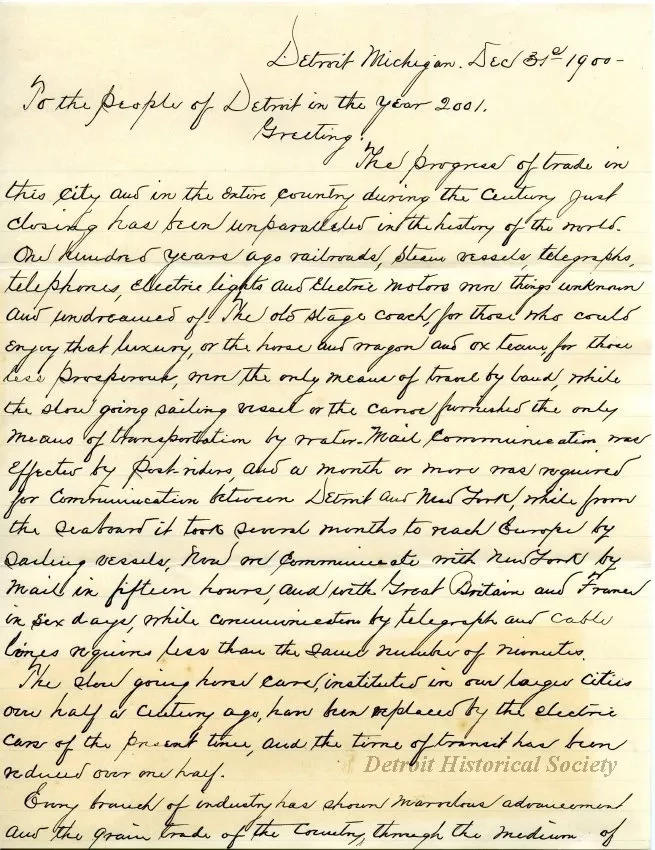 Detroit Michigan. Dec 31st 1900-
To the People of Detroit in the Year 2001.
Greeting.
The progress of trade in
this City and in the entire country during the Century just
closing has been unparalleled in the history of the world.
One hundred years ago railroads, steam vessels, telegraphs,
telephones, electric lights and Electric Motors were things unknown
and undreamed of. The old stage coach, for those who could
enjoy that luxury, or the horse and wagon and ox team, for those
less prosperous, were the only means of travel by land, while
the slow going sailing vessel or the canoe furnished the only
means of transportation by water. Mail Communication was
effected by Post-riders, and a month or more was required
for Communication between Detroit and New York, while from
the seaboard it took several months to reach Europe by
sailing vessels, Now we communicate with New York by
Mail in fifteen hours, and with Great Britain and France
in six days, while communication by telegraph and cable
lines requires less than the same number of minutes.
The slow going horse cars, instituted in our larger Cities
over half a Century ago, have been replaced by the electric
cars of the present time, and the time of transit has been
reduced over one half.
Every branch of industry has shown marvelous advancement
and the grain trade of the Country, through the medium of
Detroit Historical Society